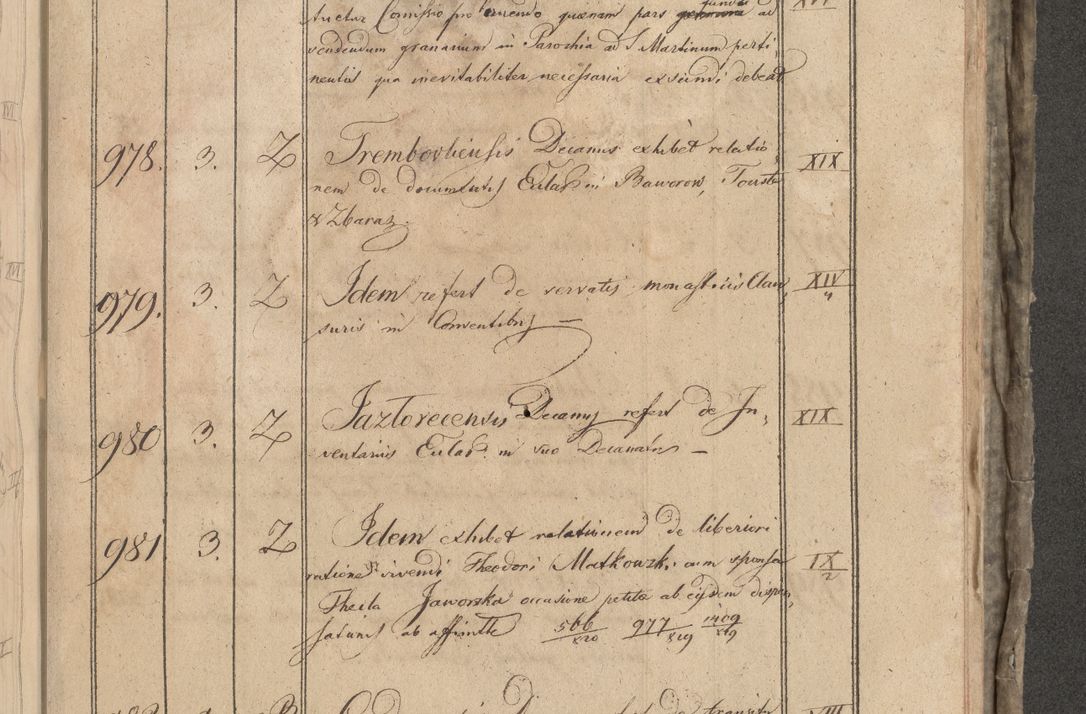 fundi XVI
Auctur Comissio pro eruendo quænam pars ad
vendendum granarium in Parochia ad S. Martinum perti
nentis qua inevitabiliter necessaria exscindi debeat
978. 3. Z Trembovliensis Decanus exhibet relatio XIX
nem de documentis Eccles in Baworow, Touste
& Zbaraz.
979. 3. Z Idem refert de servatis monasticis Clau XIV
suris in Conventibus —
980 3. Z Jazlovecensis Decanus refert de In, XIX
ventariis Eccles: in suo Decanatu —
981 3. Z Idem exhibet relationem de liberiori
ratione vivendi Theodori Matkowski cum sponsa IX/2
Thecla Jaworska occasione petitæ ab eisdem dispen,
sationis ab affinitte 566/820 977/819 1409/819